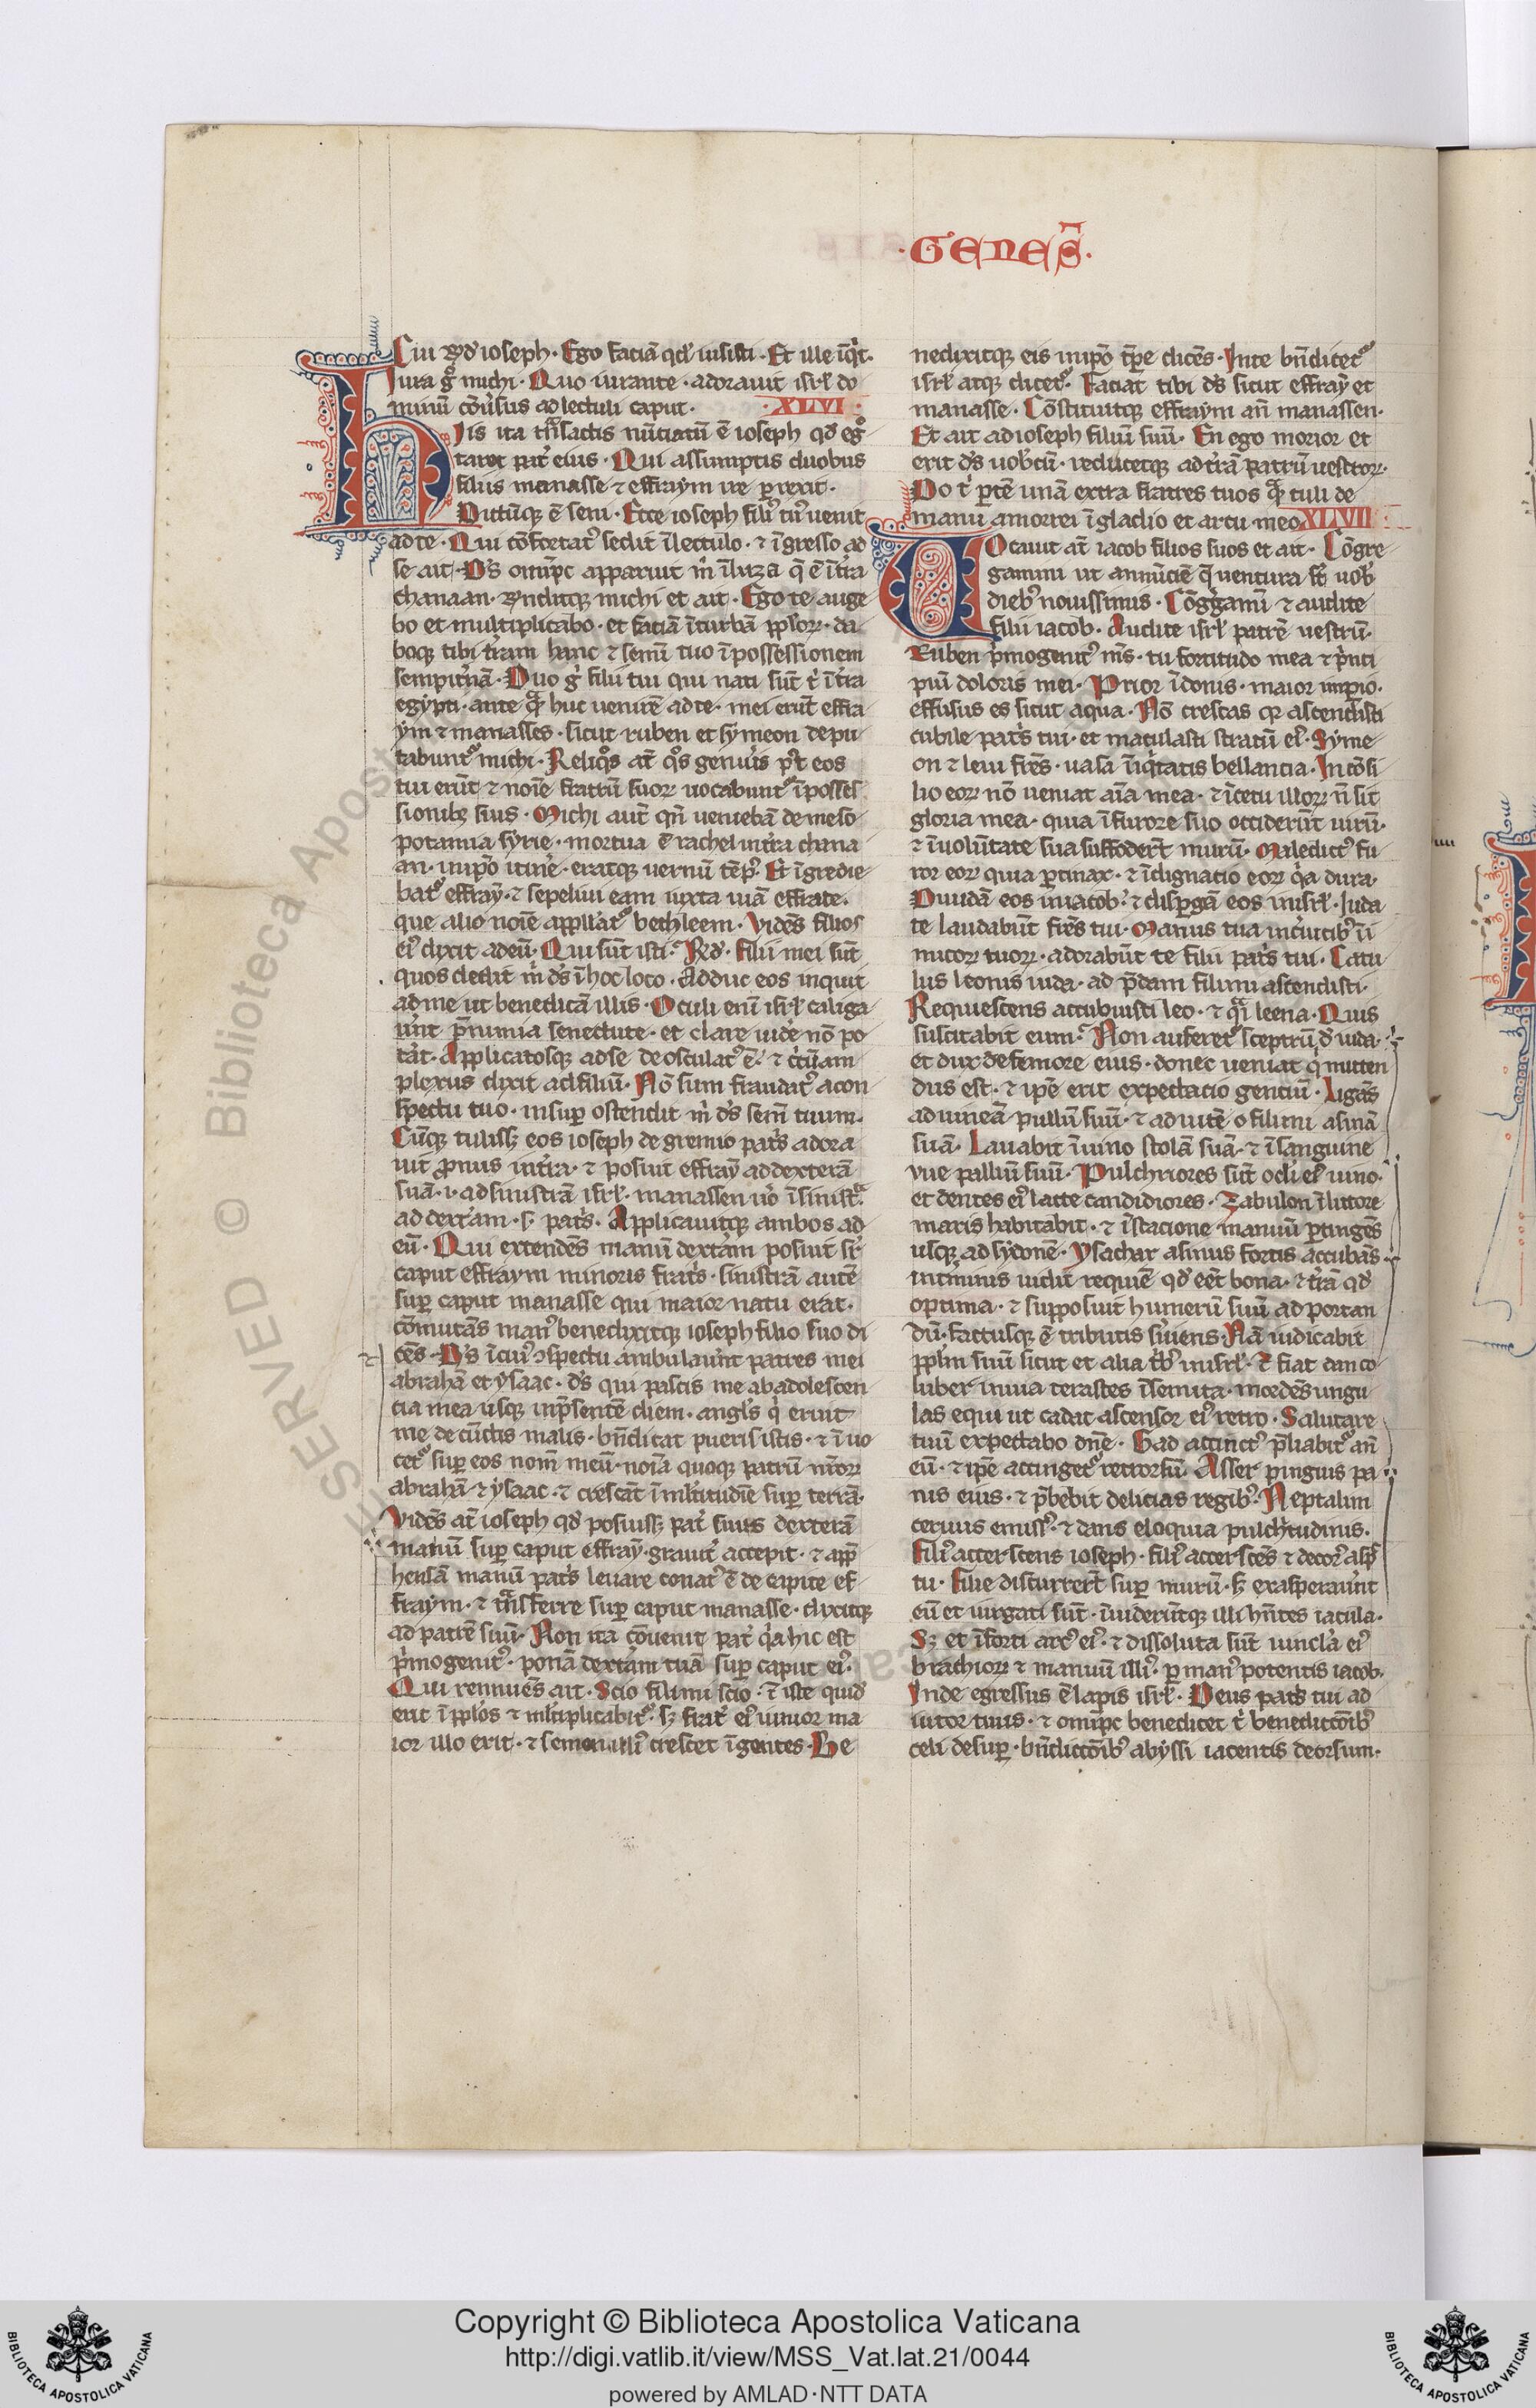 ·GENES̄·
Cui r̄nd̄ ioseph· Ego faciā qd̓ iusisti· Et ille īqͥt·
Iura gͦ michi· Quo iurante· adorauit isrł do
minū cōūsus ad lectuli caput· ·XLVI·
His ita tͣnsactis nūtiatū ē ioseph qd̓ egͦ
taret pat̓ eius· Qui assumptis duobus
filiis manasse ⁊ effraym ire prexit·
Dictūqꝫ ē seni· Ecce ioseph filiꝰ tuꝰ uenit
ad te· Qui cōfortatꝰ sedit ī lectulo· ⁊ īgresso ad
se ait· Ds̄ omp̄c apparuit m̓ ī luza q̄ ē ī t̓ra
chanaan· Bn̄dixitqꝫ michi et ait· Ego te auge
bo et multiplicabo· et faciā ī turbā pp̄loꝝ· da
boqꝫ tibi t̓ram hanc ⁊ semī tuo ī possessionem
sempit̓nā· Duo g̓ filii tui qui nati sūt t̓ ī t̓ra
egypti· ante qͣꝫ huc uenirē ad te· mei erūt effra
ym ⁊ manasses· sicut ruben et symeon depu
tabuntᷣ michi· Reliqͦs at̄ qͦs genu̓is pꝰt eos
tui erūt ⁊ noīe fratrū suoꝝ uocabuntᷣ ī posses
sionibꝫ suis· Michi aut̄ qn̄ ueniebā de meso
potamia syrie· mortua ē rachel in t̓ra chana
an· in ip̄o itin̓e· eratqꝫ uernū tēpꝰ· Et īgredie
batᷣ effray̓· ⁊ sepeliui eam iuxta uiā effrate·
que alio noīe appllat̓ᷣ bethleem· Videns filios
eiꝰ dixit ad eū· Qui sūt isti· Rd̄· filii mei sūt
quos dedit m̓ ds̄ ī hoc loco· Adduc eos inquit
ad me ut benedicā illis· Oculi enī isrł caliga
u̓nt p̄ nimia senectute· et clare uide̓ nō po
tāt· Applicatosqꝫ ad se deosculatꝰ ē· ⁊ circūam
plexus dixit ad filiū· Nō sum fraudatꝰ a con
spectu tuo· insuꝑ ostendit m̓ ds̄ sem̄ tuum·
Cūqꝫ tulissꝫ eos ioseph de gremio pat̓s adora
uit ꝓnus in t̓ra· ⁊ posuit effray̓ ad dexterā
suā· i· ad sinistrā isrł· manassen uͦ ī sinistͣ
ad dext̓am· s· pat̓s· Applicauitqꝫ ambos ad
eū· Qui extendēs manū dext̓am posuit sr̄
caput effraym minoris frat̓s· sinistrā autē
suꝑ caput manasse qui maior natu erat·
cōmutās manꝰ benedixitqꝫ ioseph filio suo di
cēs· Ds̄ ī cuiꝰ ꝯspectu ambulau̓nt patres mei
abrahā et ysaac· ds̄ qui pascis me ab adolescen
tia mea usqꝫ in p̄sentē diem· angl̓s qͥ eruit
me de cūctis malis· bn̄dicat pueris istis· ⁊ īuo
cetᷣ suꝑ eos nom̄ meū· noīa quoqꝫ patrū m̄oꝝ
abrahā ⁊ ysaac· ⁊ crescāt ī ml̓titudīe suꝑ terrā·
Videns at̄ ioseph qd̓ posuissꝫ pat̓ suus dexterā
manū suꝑ caput effray̓· grauit̓ accepit· ⁊ app̄
hensā manū pat̓s leuare conatꝰ ē de capite ef
fraym· ⁊ tͣnsferre suꝑ caput manasse· dixitqꝫ
ad patrē suū· Non ita cōuenit pat̓ qͥa hic est
pͥmogenitꝰ· ponā dextam tuā suꝑ caput eiꝰ·
Qui rennuēs ait· Scio fili mi scio· ⁊ iste quid̓
erit ī pp̄los ⁊ ml̓tiplicabitᷣ· sꝫ frat̓ eiꝰ iunior ma
ior illo erit· ⁊ semen illiꝰ crescet ī gentes· Be
nedixitqꝫ eis in ip̄o tp̄re dicēs· In te bn̄dicetᷣ
isrł atqꝫ dicetᷣ· Faciat tibi ds̄ sicut effray̓ et
manasse· Cōstituitqꝫ effraym an̄ manassen·
Et ait ad ioseph filiū suū· En ego morior et
erit ds̄ uobcū· reducetqꝫ ad t̓rā patrū uestroꝝ·
Do t̓ ptē unā extra fratres tuos qͣꝫ tuli de
manu amorrei ī gladio et arcu meo· XLVII·
Vocauit at̄ iacob filios suos et ait· Cōgre
gamini ut annūciē q̄ uentura st̄ uob̓
diebꝰ nouissimis· Cōgͣgamī ⁊ audite
filii iacob· Audite isrł patrē uestrū·
Ruben pͥmogenitꝰ m̄s· tu fortitudo mea ⁊ pͥnci
piū doloris mei· Prior ī donis· maior impio·
effusus es sicut aqua· Nō crescas qꝛ ascendisti
cubile pat̓s tui· et maculasti stratū eiꝰ· Syme
on ⁊ leui fr̄es· uasa īiqͥtatis bellantia· In cōsi
lio eoꝝ nō ueniat aīa mea· ⁊ ī cetu illoꝝ n̄ sit
gloria mea· quia ī furore suo occiderūt uirū·
⁊ ī uolūtate sua suffoder̄t murū· Maledictꝰ fu
ror eoꝝ quia ptinax· ⁊ īdignatio eoꝝ qͥa dura·
Diuidā eos in iacob· ⁊ dispgā eos in isrł· Iuda
te laudabūt fr̄es tui· Manus tua in c̓uicibꝰ īi
micoꝝ tuoꝝ· adorabūt te filii pat̓s tui· Catu
lus leonis iuda· ad p̄dam fili mi ascendisti·
Requiescens accubuisti leo· ⁊ qͣi leena· Quis
suscitabit eum· Non auferetᷣ sceptrū d̓ iuda·
et dux de femore eius· donec ueniat qͥ mitten
dus est· ⁊ ip̄e erit expectacio gentiū· Ligās
ad uineā pullū suū· ⁊ ad uitē o fili mi asinā
suā· Lauabit ī uino stolā suā· ⁊ ī sanguine
vue palliū suū· Pulchriores sūt ocl̓i eiꝰ uino·
et dentes eiꝰ lacte candidiores· Zabulon ī littore
maris habitabit· ⁊ ī stacione nauiū ptingēs
usqꝫ ad sydonē· Ysachar asinus fortis accubās·
int̓minis uidit requiē qd̓ eēt bona· ⁊ t̓rā qd̓
optima· ⁊ supposuit humerū suū ad portan
dū· factusqꝫ ē tributis s̓uiens· Dan iudicabit
pp̄lm suū sicut et alia tͥbꝰ in isrł· ⁊ fiat dan co
luber in uia cerastes ī semita· mordēs ungu
las equi ut cadat ascensor eiꝰ retro· Salutare
tuū expectabo dn̄e· Gad accinctꝰ p̄liabitᷣ an̄
eū· ⁊ ip̄e accingetᷣ retrorsū· Asser pinguis pa
nis eius· ⁊ p̄bebit delicias regibꝰ· Neptalim
ceruus emissꝰ· ⁊ dans eloquia pulch̓tudinis·
Filiꝰ accrescens ioseph· filiꝰ accrescēs ⁊ decorꝰ asp̄
tu· Filie discurrer̄t suꝑ murū· sꝫ exasperau̓nt
eū et iurgati sūt· īuiderūtqꝫ illi hn̄tes iacula·
Sꝫ et ī forti arcꝰ eiꝰ· ⁊ dissoluta sūt uincl̓a eiꝰ
brachioꝝ ⁊ manuū illiꝰ· p manꝰ potentis iacob·
Inde egressus ē lapis isrł· Deus pat̓s tui ad
iutor tuus· ⁊ omīpc benedicet t̓ benedictōibꝰ
celi desuꝑ· bn̄dictōibꝰ abyssi iacentis deorsum·
RESERVED © Biblioteca Apostolica Vaticana
Copyright © Biblioteca Apostolica Vaticana
http://digi.vatlib.it/view/MSS_Vat.lat.21/0044
powered by AMLAD·NTT DATA
BIBLIOTECA APOSTOLICA VATICANA
BIBLIOTECA APOSTOLICA VATICANA